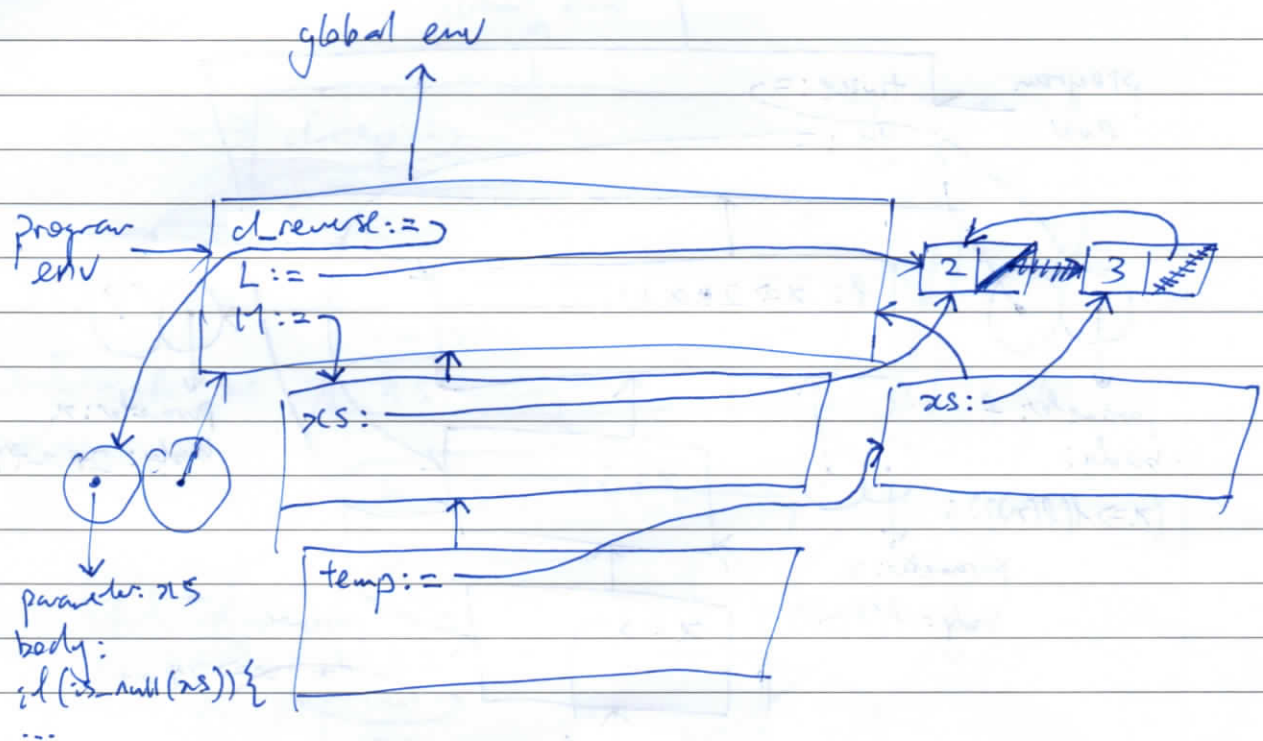 global env
program
env
d_reverse:=
L:=
M:=
2
3
xs:
xs:
temp:=
parameter: xs
body:
if(is_null(xs)){
...